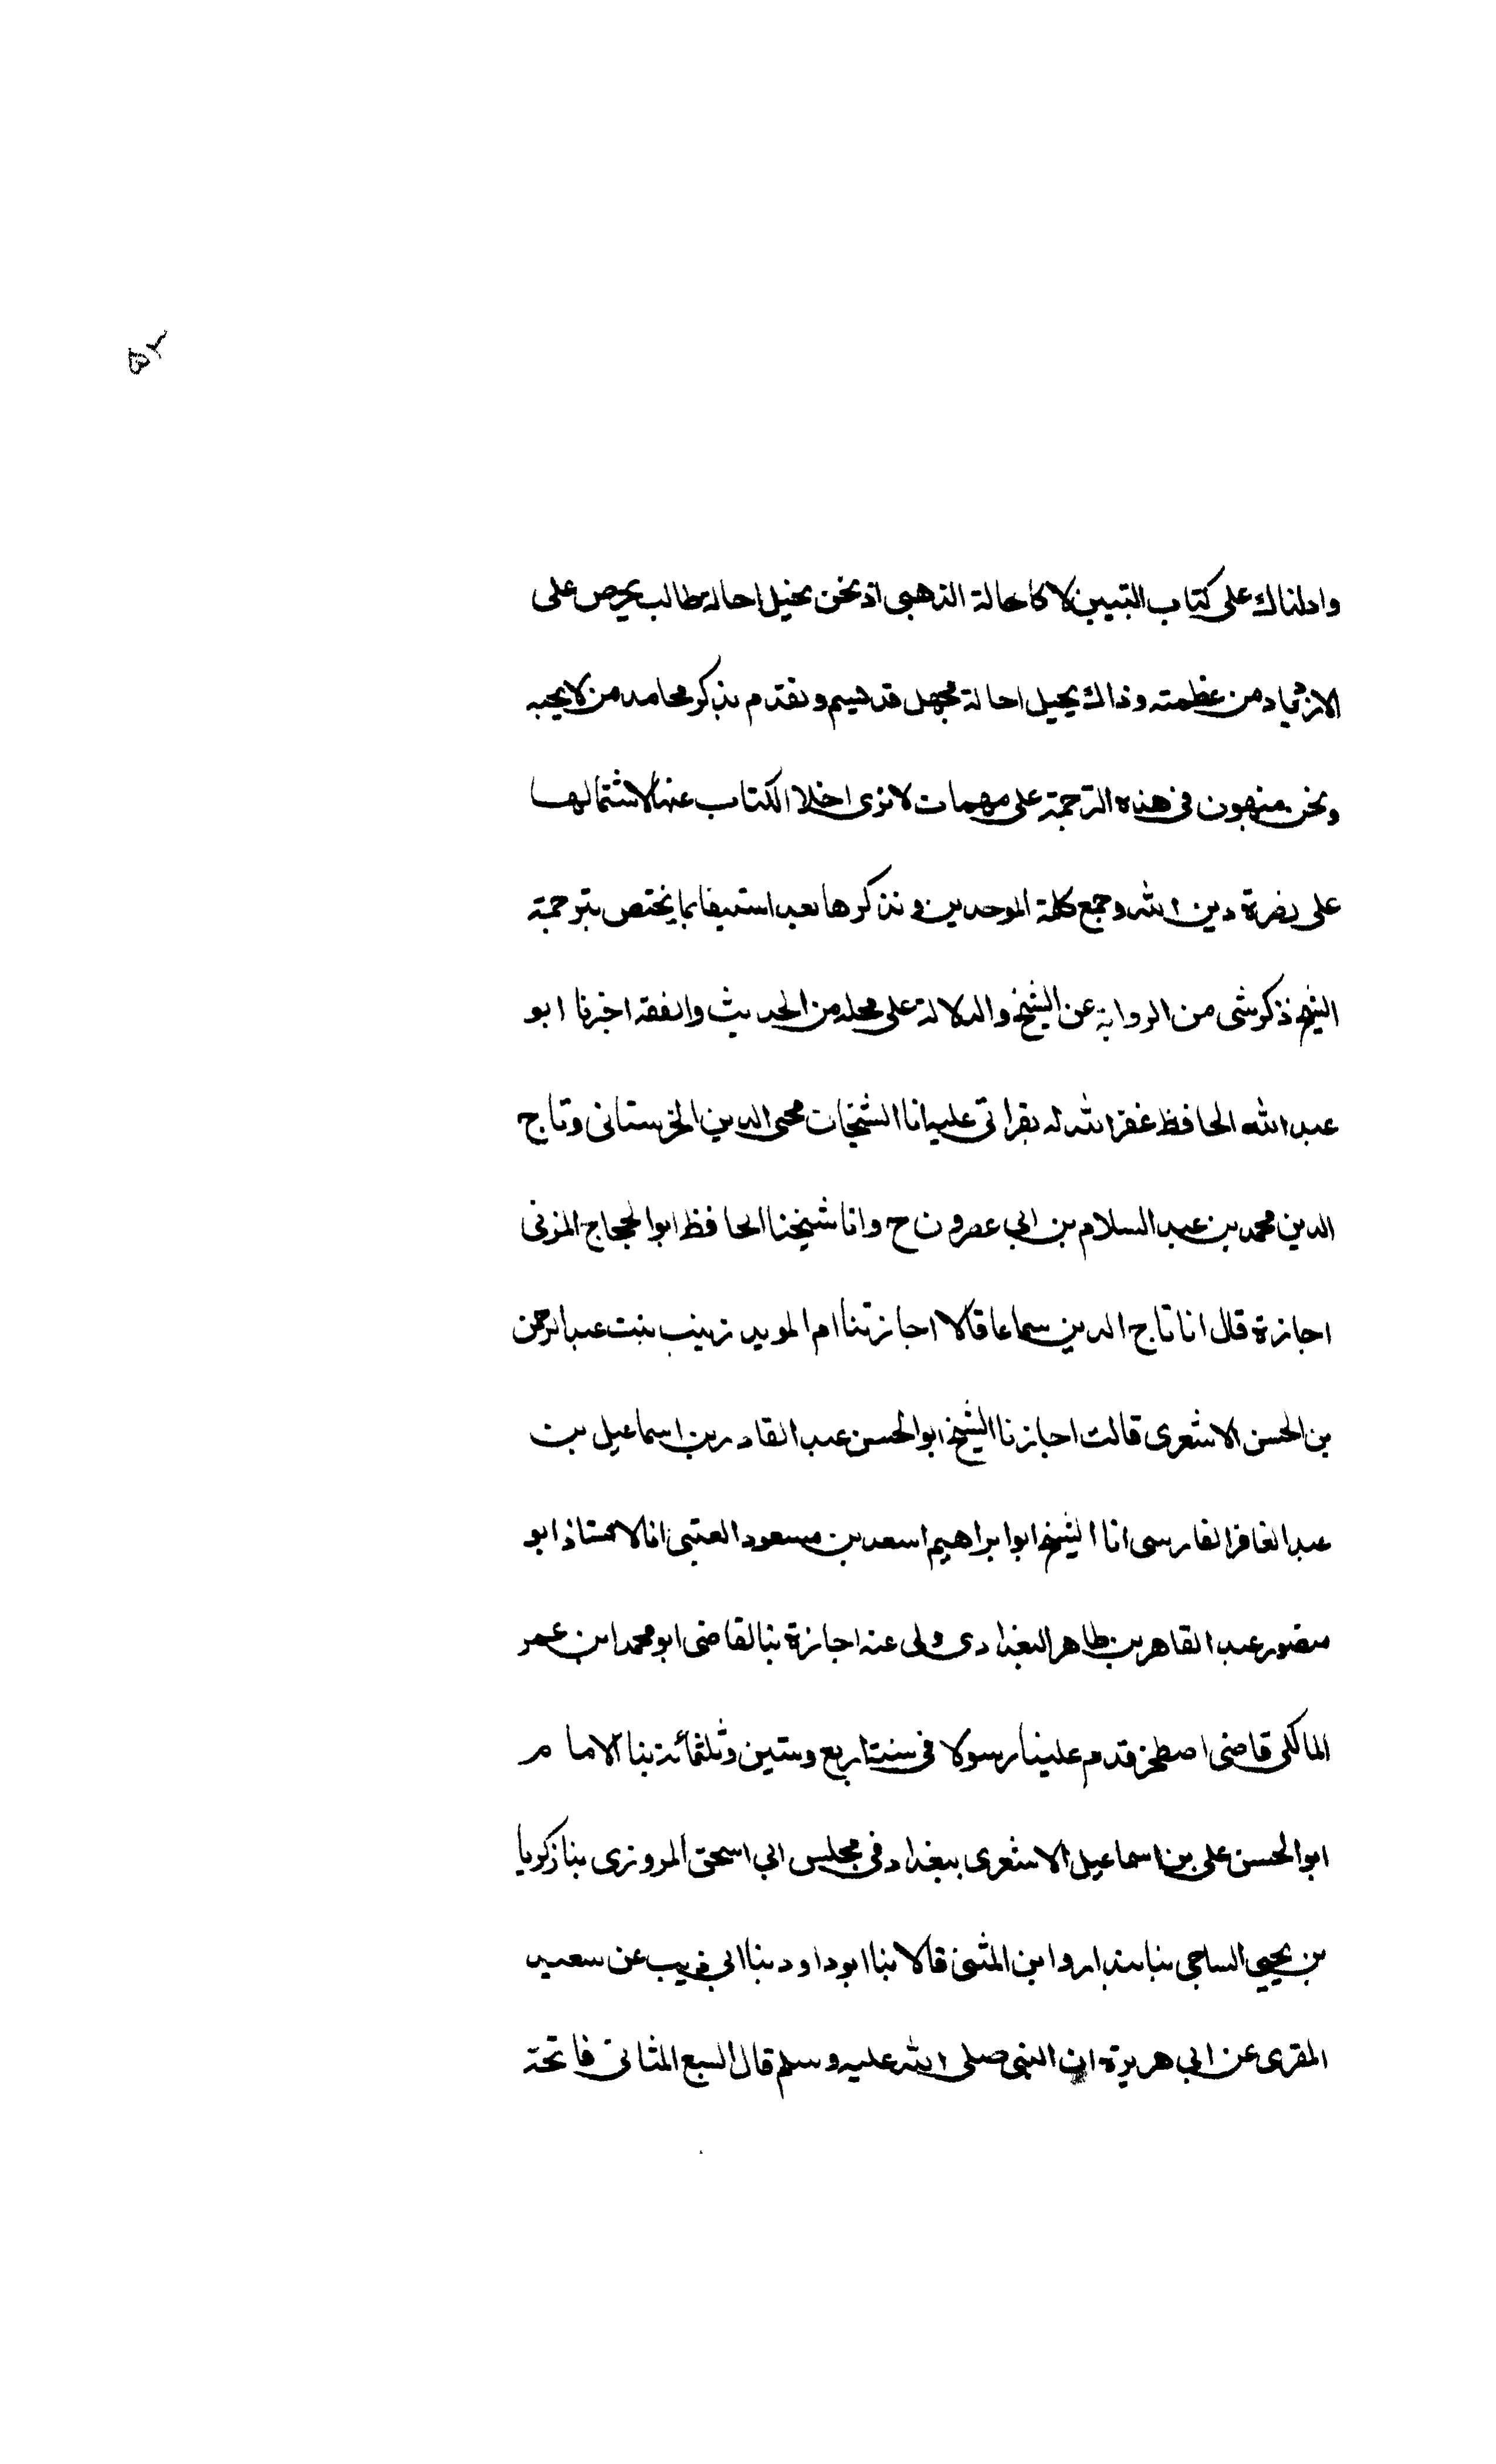 وادلناك على كتاب التبيين لا كاحالة الذهبي اذ نحن نحيل احالة طالب يحرص على
الازدياد من عظمته وذاك يحيل احالة مجهل قد سئم وتقدم بذكر محامد من لا يحبه
ونحن منبهون في هذه الترجمة على مهمات لا نرى اخلا الكتاب عنها لاشتمالها
على نصرة دين الله وجمع كلمة الموحدين ونذكرها بعد استيفا ما يختص بترجمة
الشيخ ذكر شى من الرواية عن الشيخ والدلالة على محله من الحديث والفقه اخبرنا ابو
عبد الله الحافظ غفر الله له بقراتي عليه انا الشيخان محي الدين الخرستاني وتاج
الدين محمد بن عبد السلام بن ابي عصرون ح وانا شيخنا الحافظ ابو الحجاج المزني
اجازة قال انا تاج الدين سماعا قالا اجازتنا ام المويد زينب بنت عبد الرحمن
بن الحسن الاشعرى قالت اجازنا الشيخ ابو الحسن عبد القادر بن اسماعيل بن
عبد الغافر الفارسى انا الشيخ ابو ابراهيم اسعد بن مسعود العتبي انا الاستاذ ابو
منصور عبد القاهر بن طاهر البغدادى ولى عنه اجازة بنا القاضى ابو محمد ابن عمر
المالكى قاضى اصطخر قدم علينا رسولا فى سنة اربع وستين وثلثمائة بنا الامام
ابو الحسن على بن اسماعيل الاشعرى ببغداد فى مجلس ابي اسحق المروزى بنا زكريا
بن يحيى الساجى بنا بندار وابن المثنى قالا بنا ابو داود بنا ابى ذيب عن سعيد
المقرى عن ابي هريرة ان النبى صلى الله عليه وسلم قال السبع المثانى فاتحة